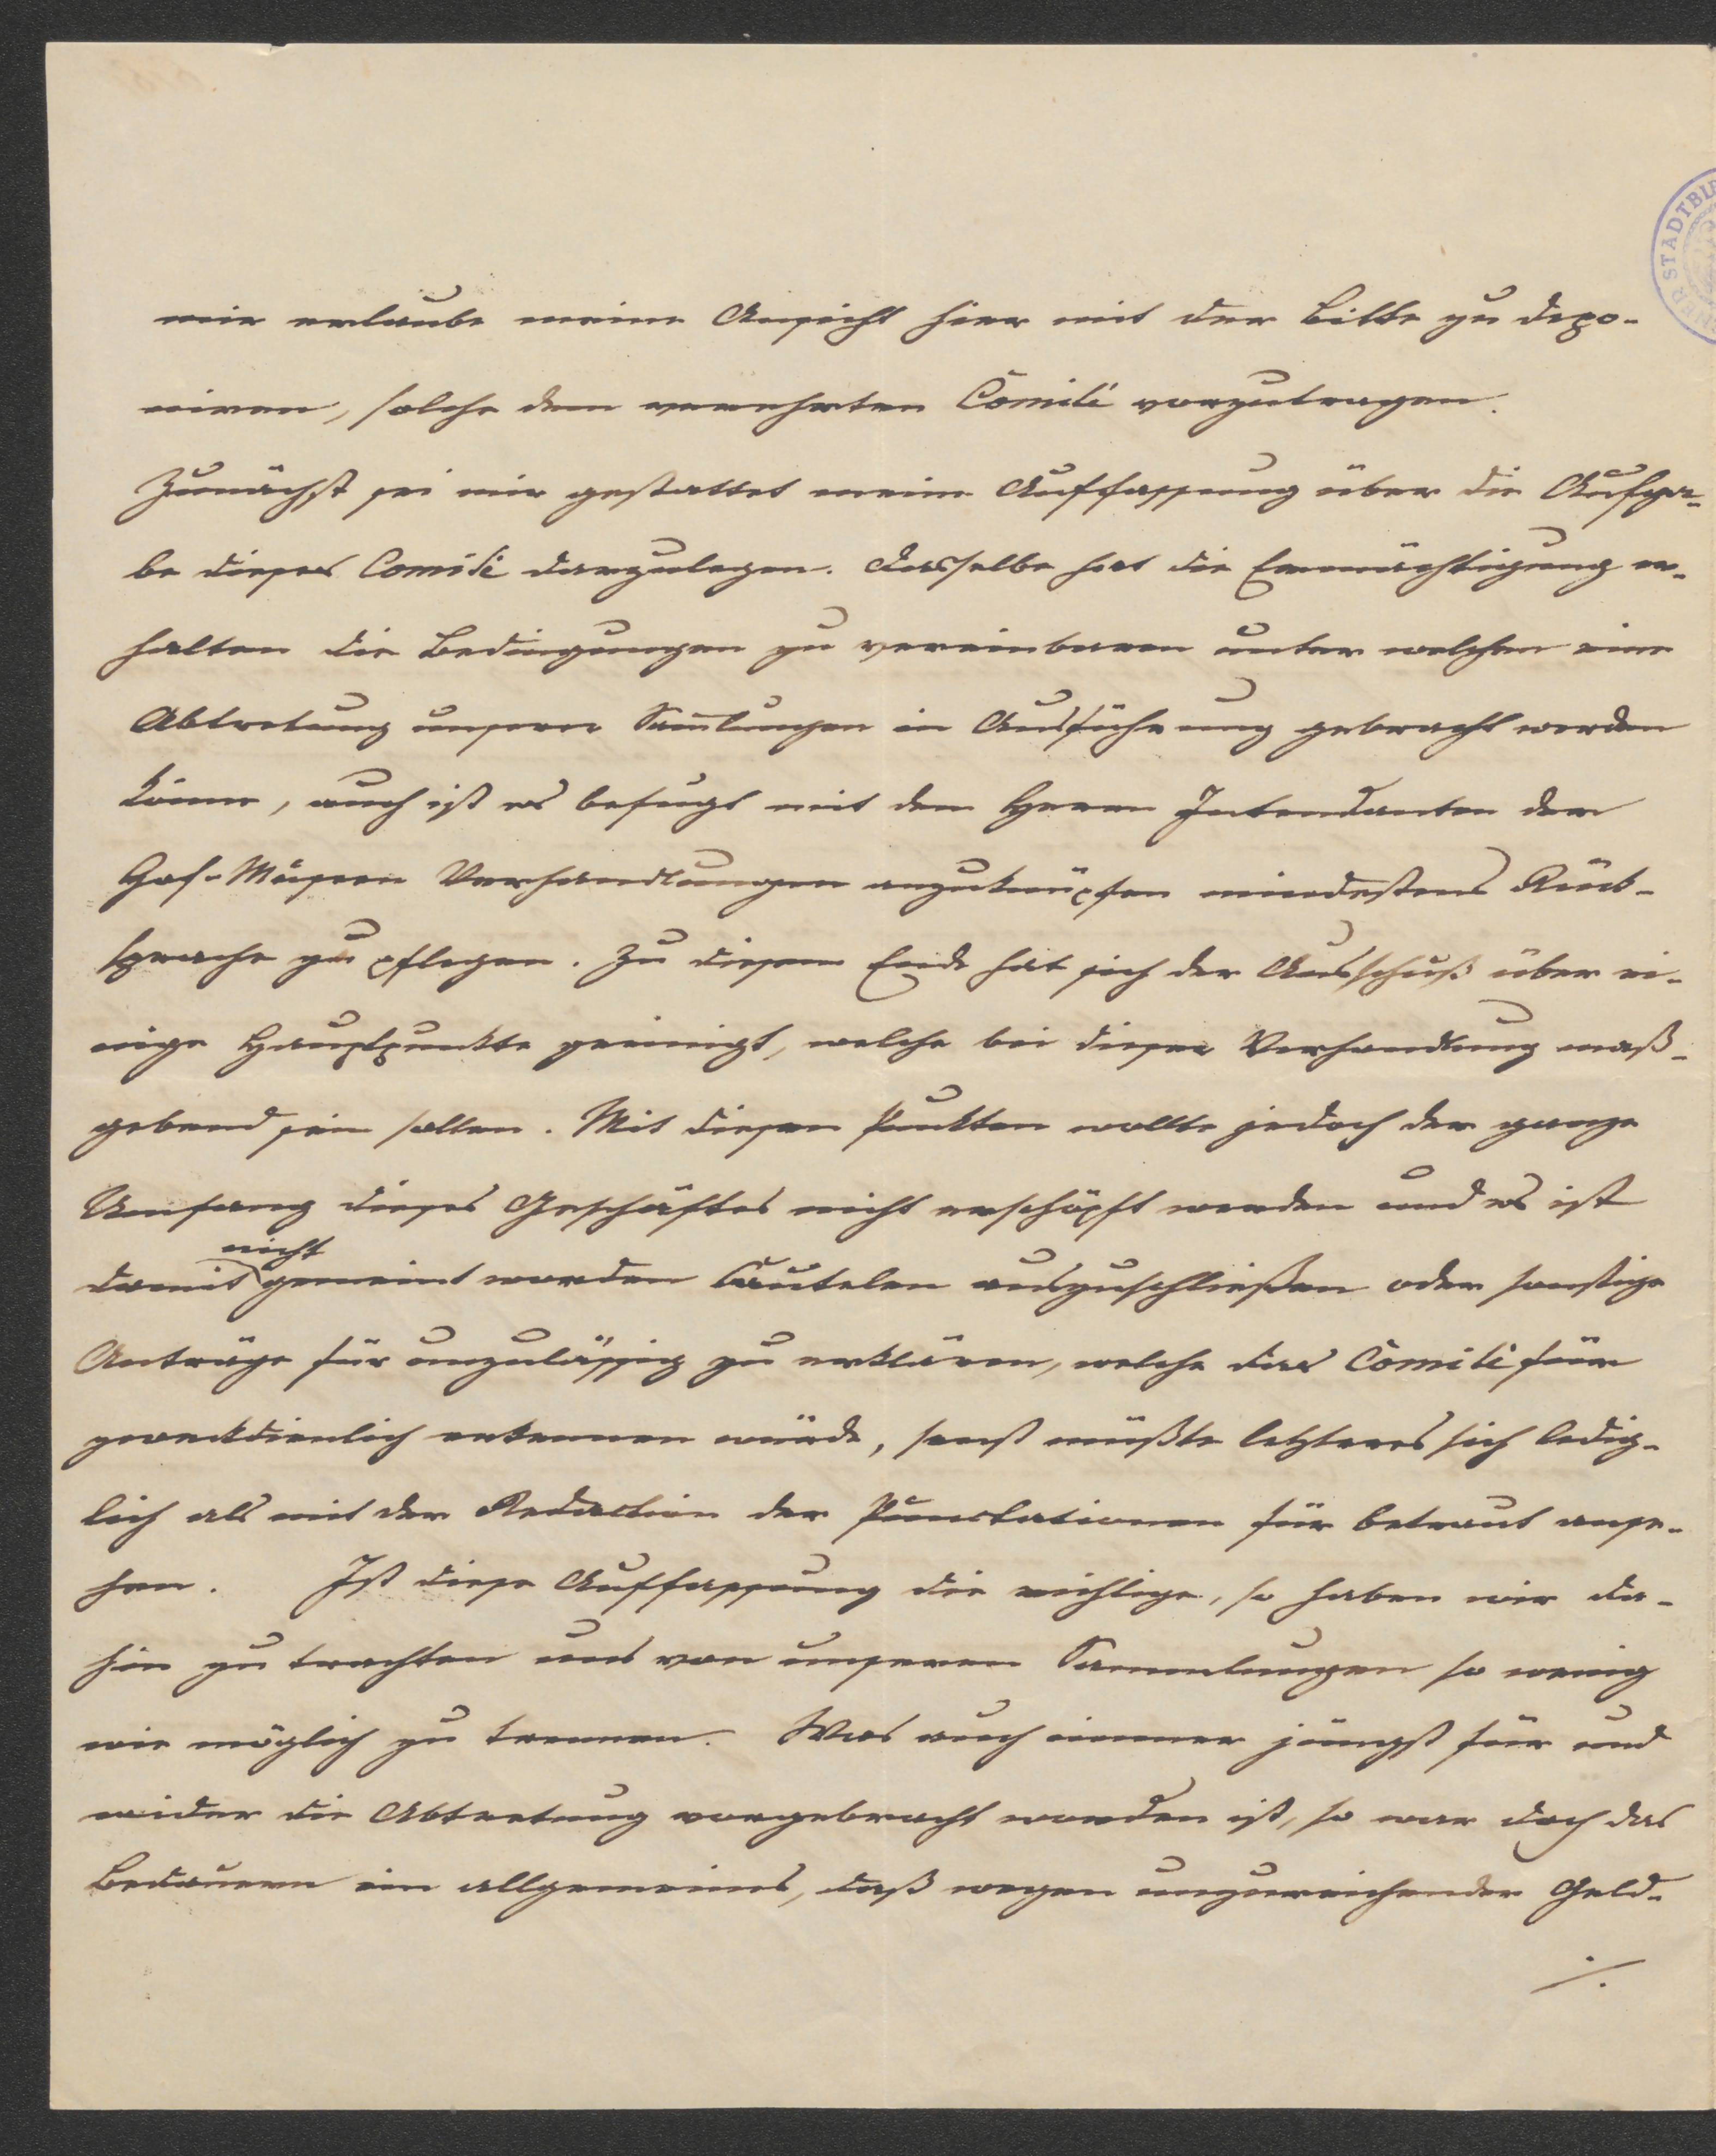 mir erlaube meine Ansicht hier mit der Bitte zu depo-
niren, solche dem verehrten Comité vorzutragen.
Zunächst sei mir gestattet meine Auffassung über die Aufga-
be dieses Comité darzulegen. Dasselbe hat die Ermächtigung er-
halten die Bedingungen zu vereinbaren unter welchen eine
Abtretung unserer Sam̅lungen in Ausführung gebracht werden
könne, auch ist es befugt mit dem Herrn Intendanten der
Hof-Museen Verhandlungen anzuknüpfen mindestens Rück-
sprache zu pflegen. Zu diesem Ende hat sich der Ausschuß über ei-
nige Hauptpunkte geeinigt, welche bei dieser Verhandlung maß-
gebend sein sollen. Mit diesen Punkten wollte jedoch der ganze
Umfang dieses Geschäftes nicht erschöpft werden und es ist
damit nicht gemeint worden Cautelen auszuschließen oder sonstige
Anträge für unzulässig zu erklären, welche das Comité für
zweckdienlich erkennen würde, sonst müßte letzteres sich ledig-
lich als mit der Redaction der Punctationen für betraut anse-
hen. Ist diese Auffassung die richtige, so haben wir da-
hin zu trachten uns von unseren Sammlungen so wenig
wie möglich zu trennen. Was auch immer jüngst für und
wider die Abtretung vorgebracht worden ist, so war doch das
Bedauern ein allgemeines, daß wegen unzureichender Geld-
./.
STADTBI